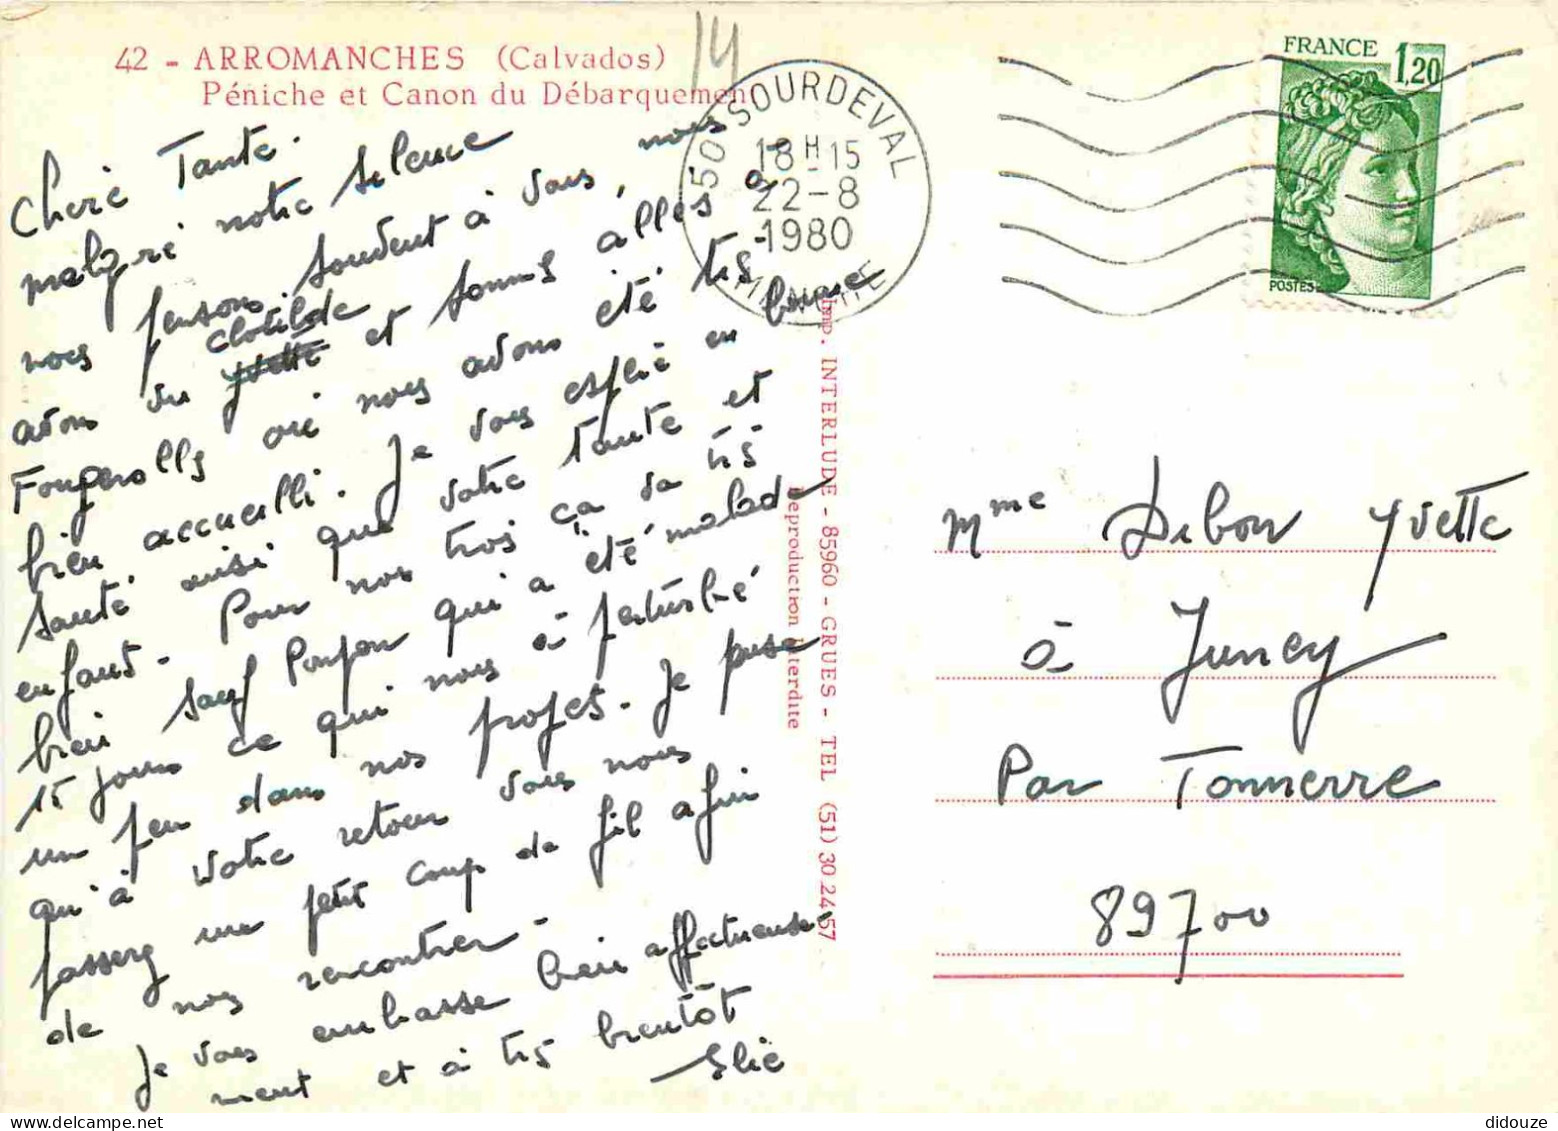 42 - ARROMANCHES (Calvados)
Péniche et Canon du Débarquement
14
50 SOURDEVAL
18 H 15
22-8
1980
MANCHE
FRANCE 1,20
POSTES
Chère Tante.
malgré notre silence
nous pensons souvent à vous, nous
avons vu Clotilde et sommes allés à
Fougerolls où nous avons été très
bien accueilli. Je vous espère en bonne
santé ainsi que votre Tante et
enfant. Pour nos trois ça va très
bien sauf Ponpon qui a été malade
15 jours ce qui nous à perturbé
un peu dans nos projets. Je pense
qu'à votre retour vous nous
passerez un petit coup de fil afin
de nous rencontrer.
Je vous embrasse bien affectueuse
ment et à très bientôt
Imp. INTERLUDE - 85960 - GRUES - TEL (51) 30 24 57
Reproduction interdite
Mme Debon Yvette
à Juney
Par Tonnerre
89700
didouze / delcampe.net